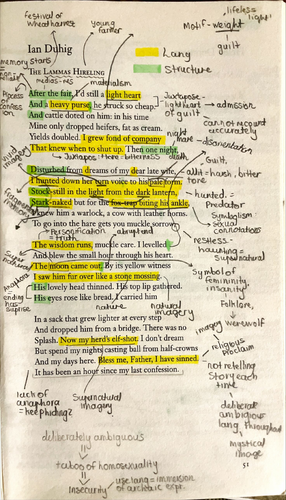 festival of
wheatharvest
Young
farmer
lifeless
light
Motif - weight
guilt
Ian Duhig
Lang
Structure
THE LAMMAS HIRELING
memory starts
medias-res
materialism
After the fair, I'd still a light heart
And a heavy purse, he struck so cheap.
And cattle doted on him: in his time
Mine only dropped heifers, fat as cream.
Yields doubled. I grew fond of company
That knew when to shut up. Then one night,
Juxtapose
light heart
of guilt
admission
cannot recount
accurately
night
mare
disorientation
Guilt.
Disturbed from dreams of my dear late wife,
I hunted down her torn voice to his pale form.
Stock-still in the light from the dark lantern,
Stark-naked but for the fox-trap biting his ankle,
I knew him a warlock, a cow with leather horns.
To go into the hare gets you muckle sorrow,
harsh, bitter
tone
hunted
Predator
Symbolism
Sexual
connotations
Personification
truth
The wisdom runs, muckle care. I levelled
And blew the small hour through his heart.
The moon came out. By its yellow witness
I saw him fur over like a stone mossing.
His lovely head thinned. His top lip gathered.
His eyes rose like bread. I carried him
restless
haunting = Supernatural
Symbol of
feminity,
insanity
Folklore,
werewolf
nature
natural
imagery
In a sack that grew lighter at every step
And dropped him from a bridge. There was no
Splash. Now my herd's elf-shot. I don't dream
But spend my nights casting ball from half-crowns
And my days here. Bless me, Father, I have sinned.
It has been an hour since my last confession.
imagery
religious
proclaim
not retelling
story each
time
deliberate
ambigiour
lang, throughout
mystical
image
51
ending
has
suprise
lack of
anaphora
Supernatural
imagery
deliberately ambiguous
taboo of homosexuality
insecurity
use lang = immersion
of archaic expr.